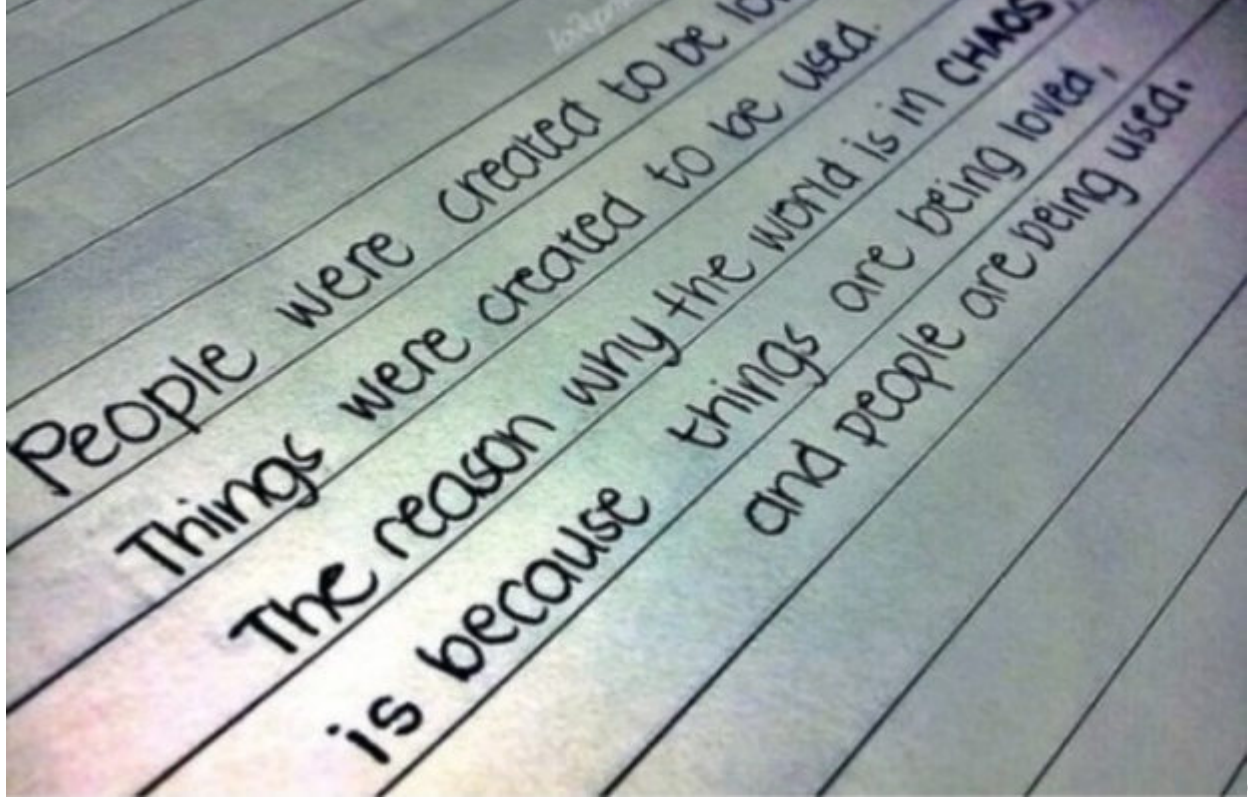 People were created to be lo
Things were created to be used.
The reason why the world is in CHAOS,
is because things are being loved,
and people are being used.